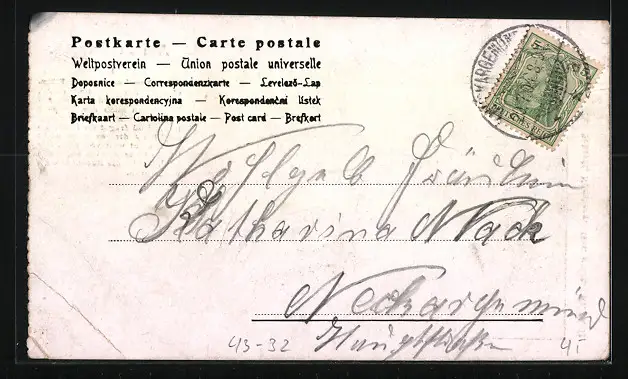 Postkarte — Carte postale
Weltpostverein — Union postale universelle
Dopisnice — Correspondenzkarte — Levelező-Lap
Karta korespondencyjna — Korespondenční lístek
Briefkaart — Cartolina postale — Post card — Brefkort
Wohlgeb Fräulein
Katharina Nack
Neckargemünd
Hauptstraße
43-32
4.-